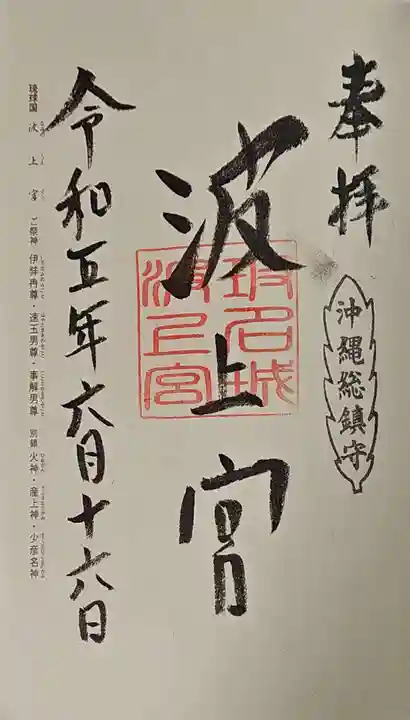 奉拝
沖縄総鎮守
波上宮
令和五年六月十六日
琉球国 波上宮 ご祭神 伊弉冉尊・速玉男尊・事解男尊 別鎮 火神・産土神・少彦名神